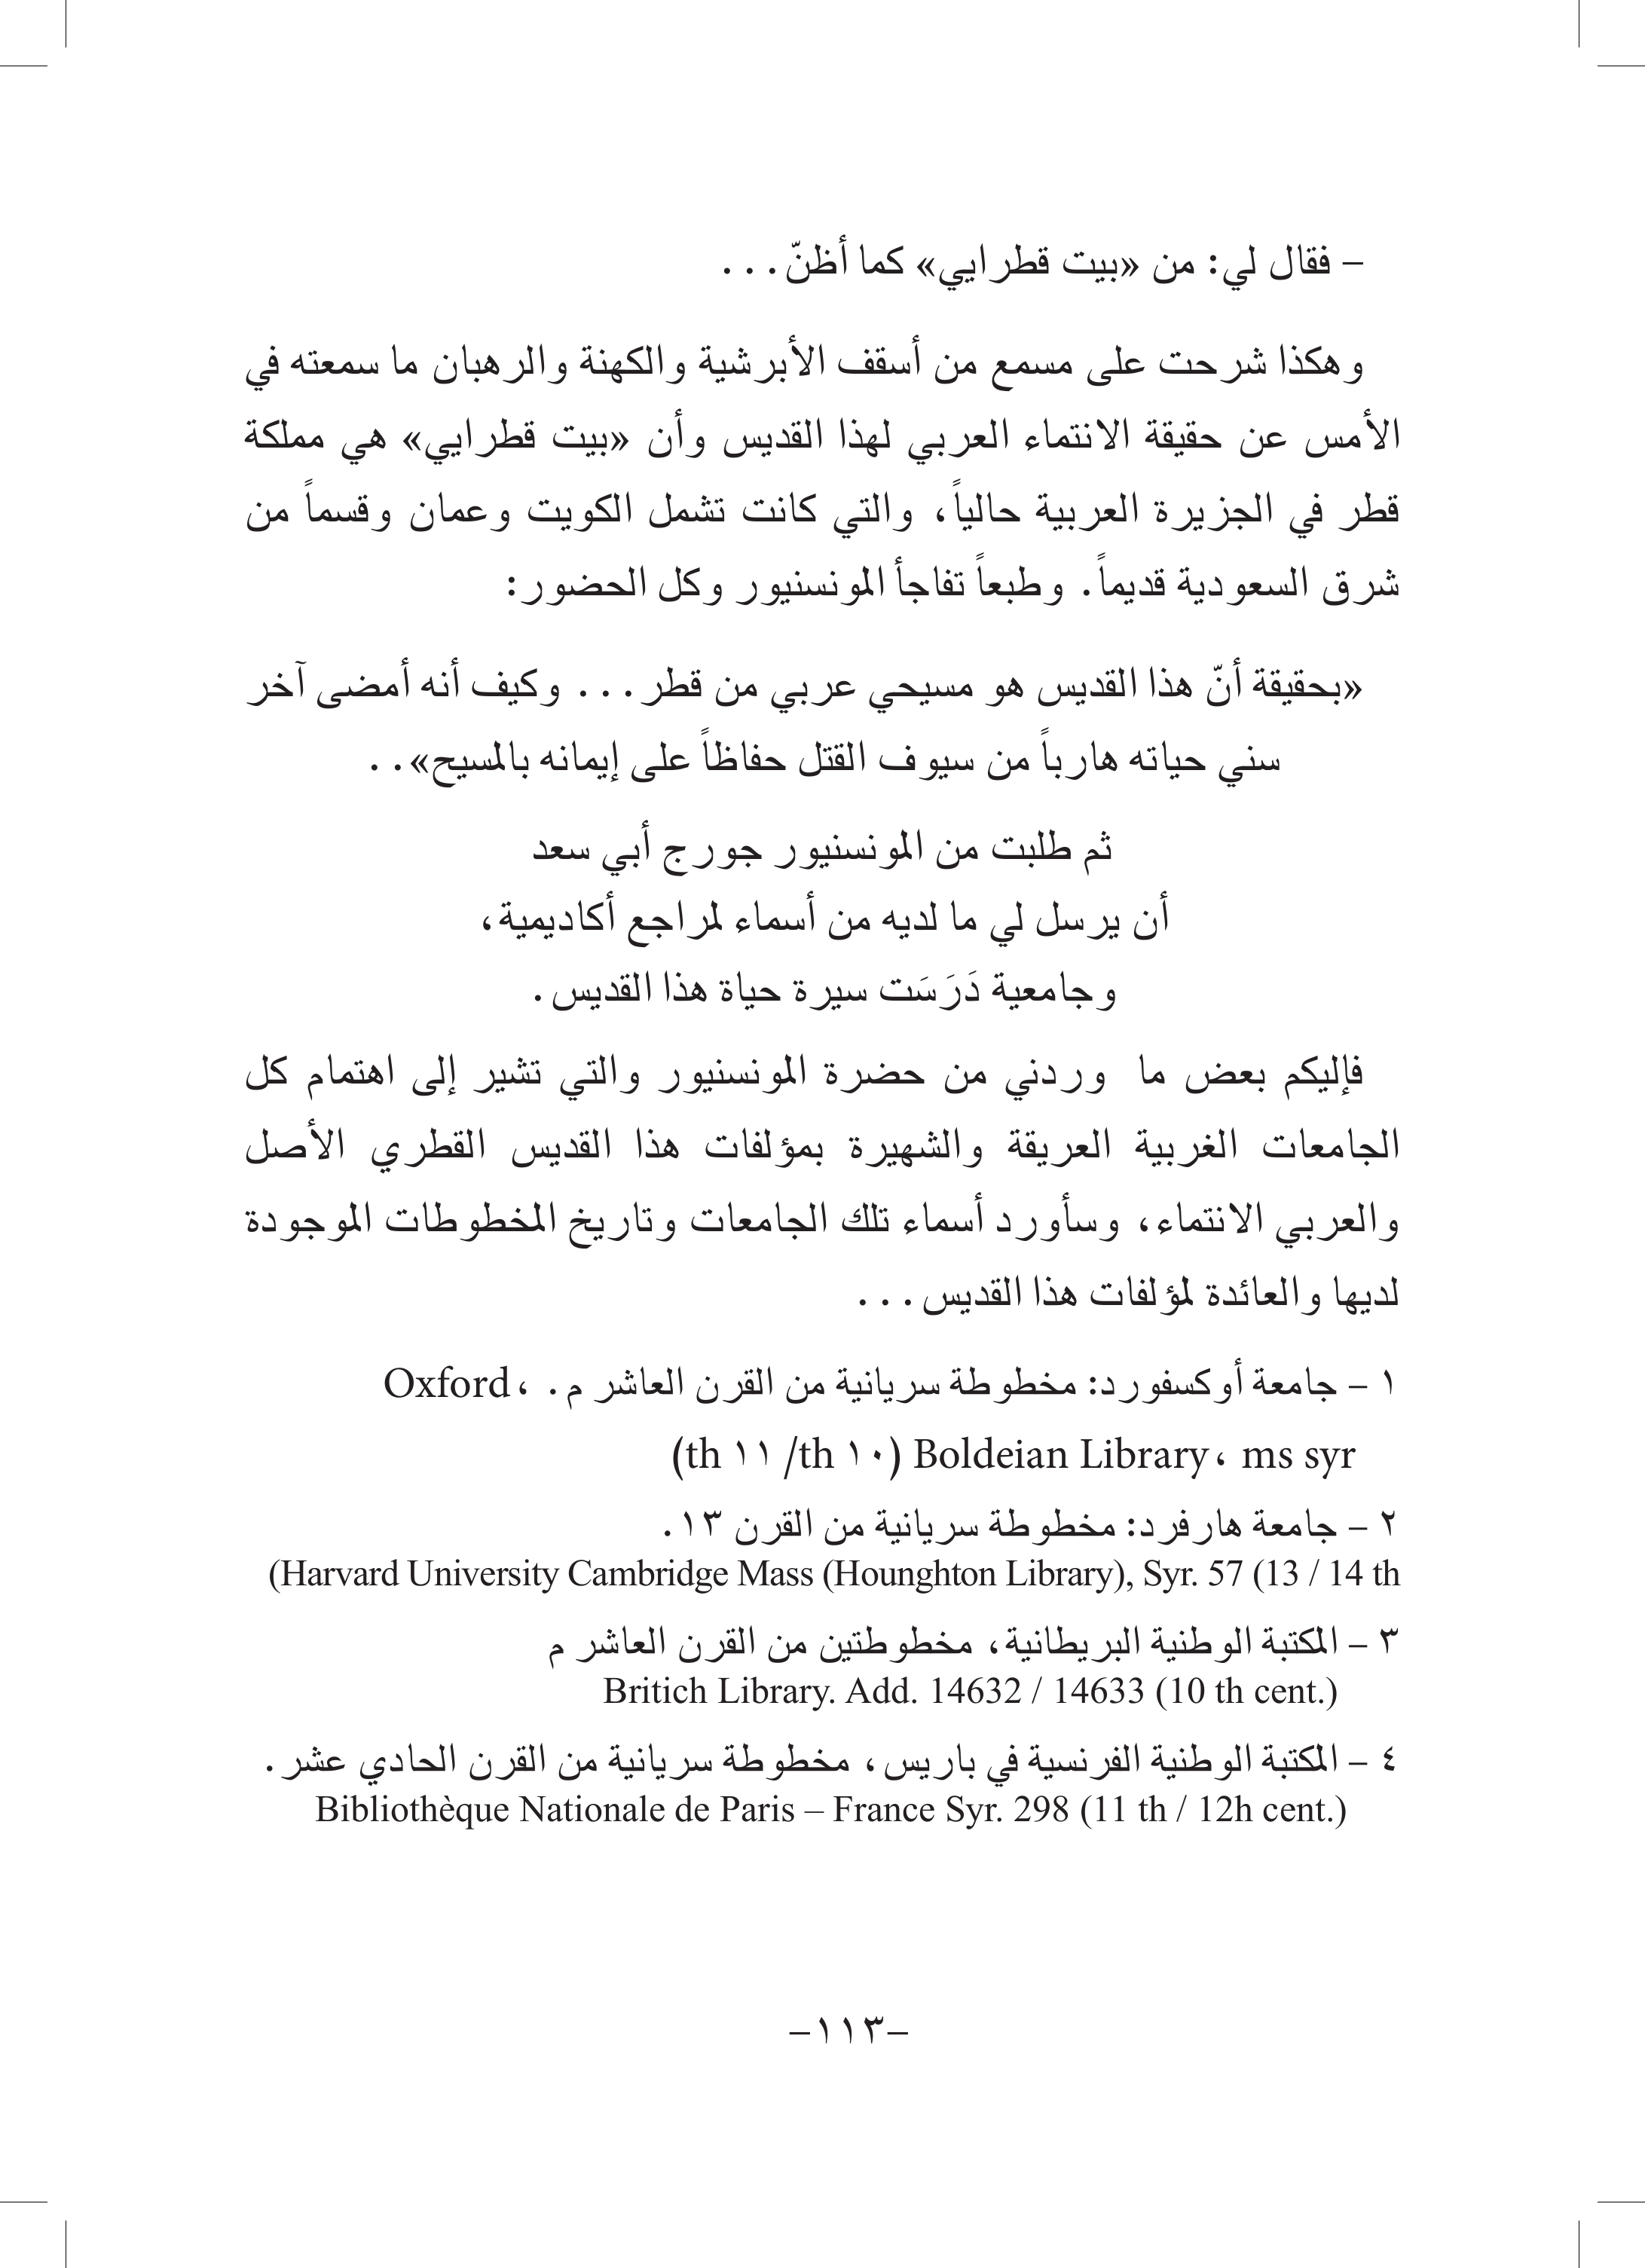 – فقال لي: من «بيت قطرايي» كما أظنّ...
وهكذا شرحت على مسمع من أسقف الأبرشية والكهنة والرهبان ما سمعته في
الأمس عن حقيقة الانتماء العربي لهذا القديس وأن «بيت قطرايي» هي مملكة
قطر في الجزيرة العربية حالياً، والتي كانت تشمل الكويت وعمان وقسماً من
شرق السعودية قديماً. وطبعاً تفاجأ المونسنيور وكل الحضور:
«بحقيقة أنّ هذا القديس هو مسيحي عربي من قطر... وكيف أنه أمضى آخر
سني حياته هارباً من سيوف القتل حفاظاً على إيمانه بالمسيح»..
ثم طلبت من المونسنيور جورج أبي سعد
أن يرسل لي ما لديه من أسماء لمراجع أكاديمية،
وجامعية دَرَسَت سيرة حياة هذا القديس.
فإليكم بعض ما وردني من حضرة المونسنيور والتي تشير إلى اهتمام كل
الجامعات الغربية العريقة والشهيرة بمؤلفات هذا القديس القطري الأصل
والعربي الانتماء، وسأورد أسماء تلك الجامعات وتاريخ المخطوطات الموجودة
لديها والعائدة لمؤلفات هذا القديس...
١ – جامعة أوكسفورد: مخطوطة سريانية من القرن العاشر م. ،Oxford
(th ١١ /th ١٠) Boldeian Library، ms syr
٢ – جامعة هارفرد: مخطوطة سريانية من القرن ١٣.
(Harvard University Cambridge Mass (Hounghton Library), Syr. 57 (13 / 14 th
٣ – المكتبة الوطنية البريطانية، مخطوطتين من القرن العاشر م
Britich Library. Add. 14632 / 14633 (10 th cent.)
٤ – المكتبة الوطنية الفرنسية في باريس، مخطوطة سريانية من القرن الحادي عشر.
Bibliothèque Nationale de Paris – France Syr. 298 (11 th / 12h cent.)
–١١٣–